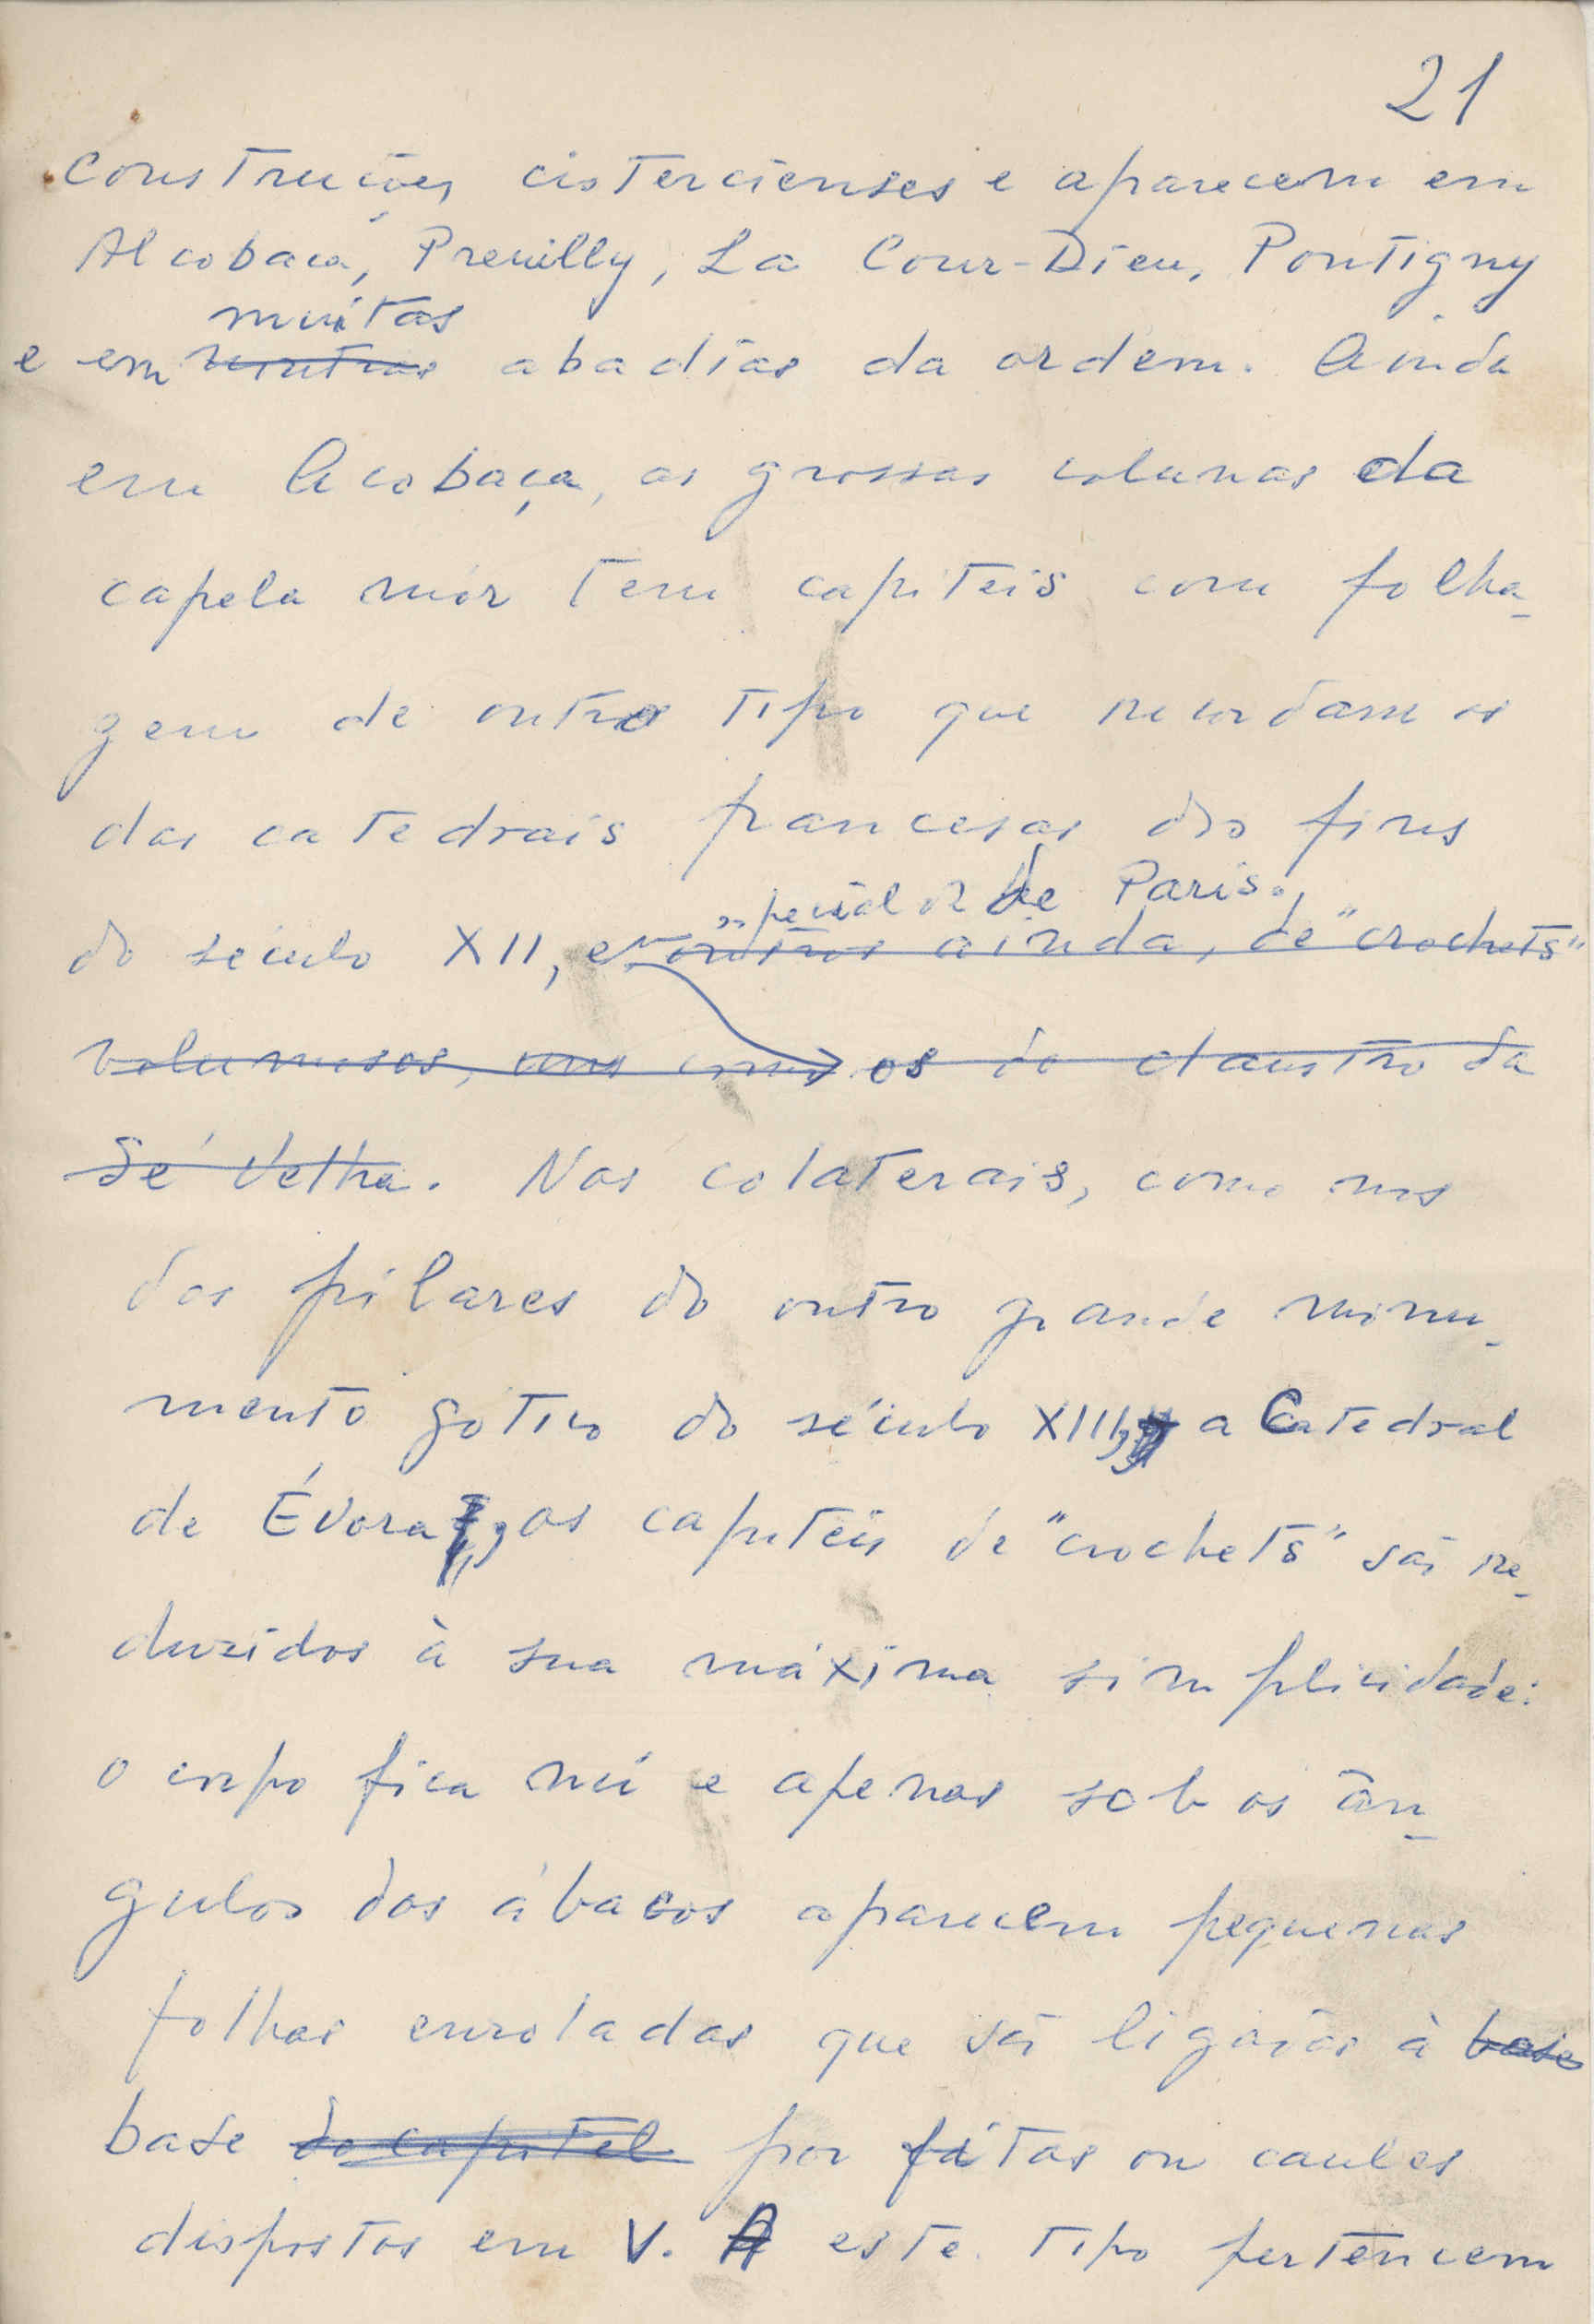 21
construções cistercienses e aparecem em
Alcobaça, Preuilly, La Cour-Dieu, Pontigny
muitas
e em outras abadias da ordem. Ainda
em Acobaça, as grossas colunas da
capela mór tem capiteis com folha-
gem de outro tipo que recordam os
das catedrais francesas dos fins
especial os de Paris.
do século XII, em outros ainda, de "crochets"
volumosos, uns como os do claustro da
Sé Velha. Nos colaterais, como nos
dos pilares do outro grande monu-
mento gotico do século XIII, a Catedral
de Évora, os capiteis de "crochets" são re-
duzidos à sua máxima simplicidade:
o corpo fica nú e apenas sob os ân-
gulos dos ábacos aparecem pequenas
folhas enroladas que são ligadas à base
base do capitel por fitas ou caules
dispostos em V. A este tipo pertencem